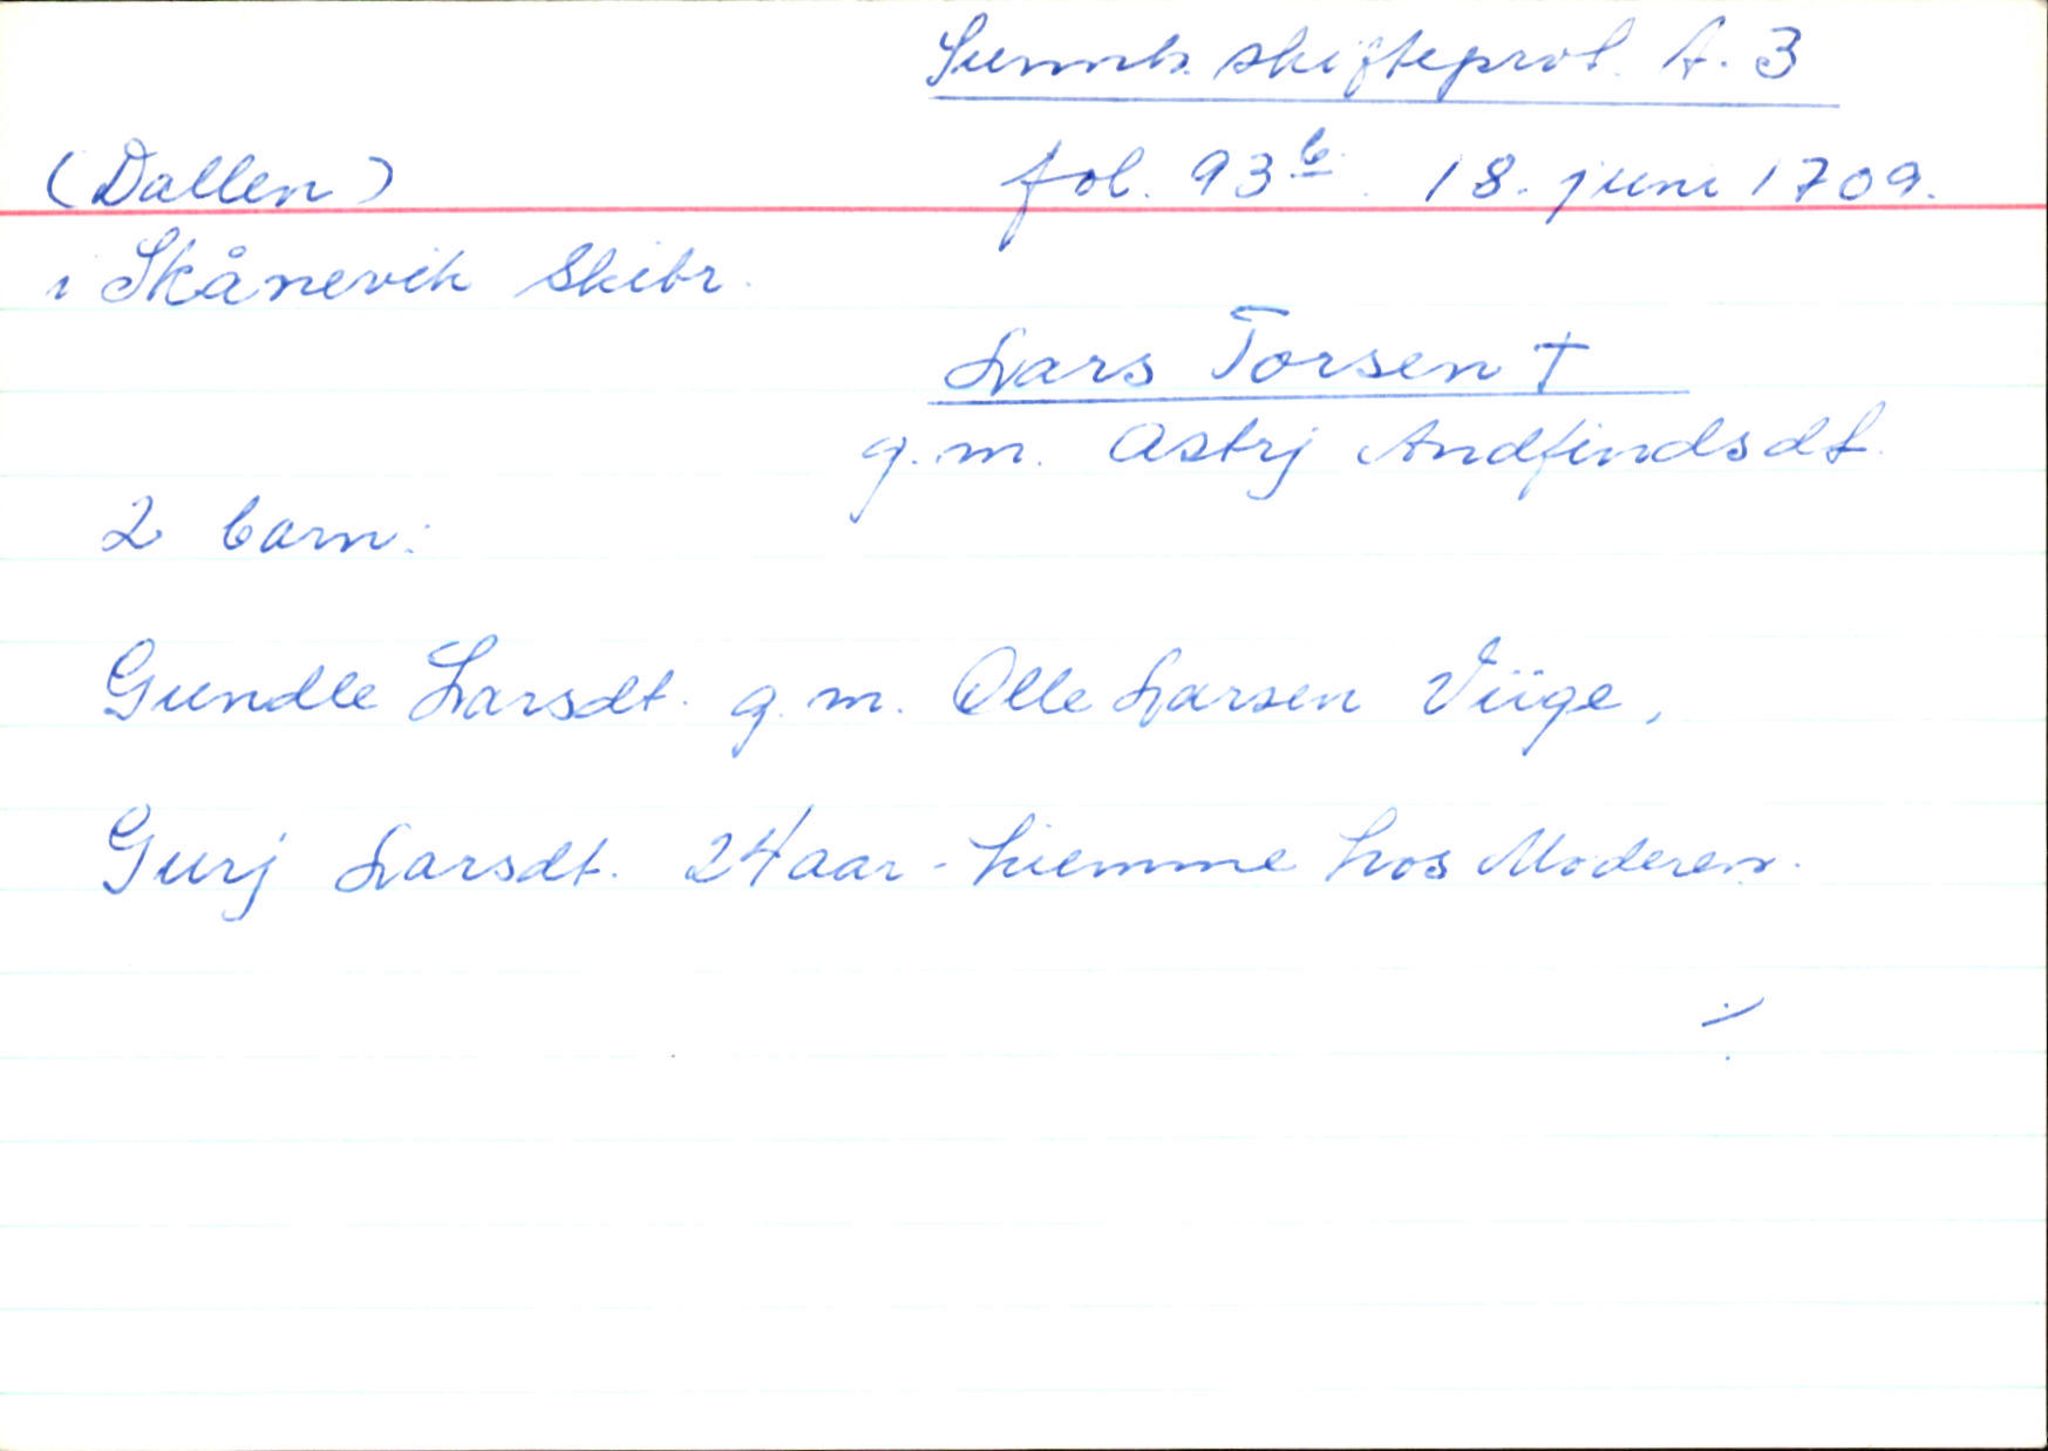 Sunnh. skifteprot. A. 3
(Dallen) fol. 93b. 18. juni 1709.
i Skånevik Skibr.
Lars Torsen †
g. m. Astrj Andfindsdt.
2 barn:
Gundle Larsdt. g. m. Olle Larsen Viige,
Gurj Larsdt. 24 aar - hiemme hos Moderen.